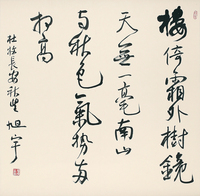 樓倚霜外樹鏡
天無一毫南山
與秋色氣勢兩
相高
杜牧長安秋望
旭宇